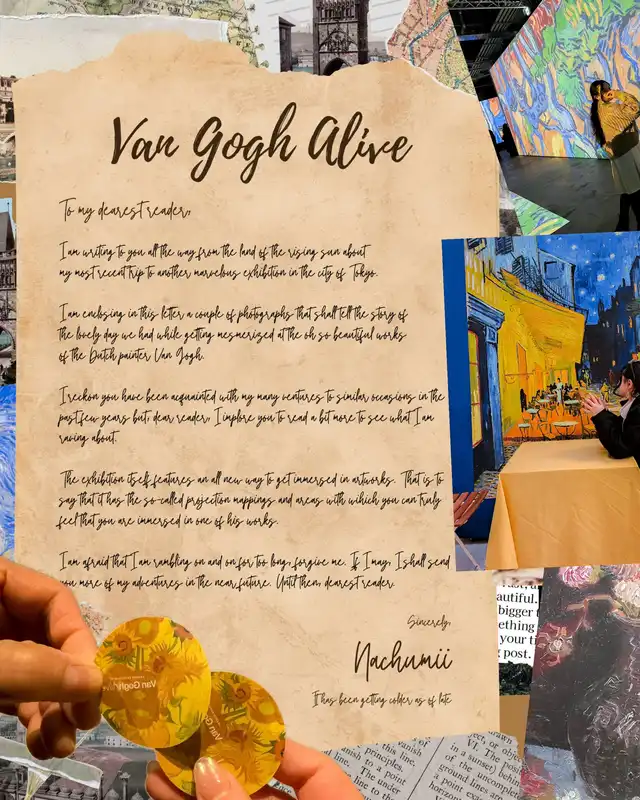 Van Gogh Alive
To my dearest reader,
I am writing to you all the way from the land of the rising sun about
my most recent trip to another marvelous exhibition in the city of Tokyo.
I am enclosing in this letter a couple of photographs that shall tell the story of
the lovely day we had while getting mesmerized at the oh so beautiful works
of the Dutch painter Van Gogh.
I reckon you have been acquainted with my many ventures to similar occasions in the
past few years but, dear reader, I implore you to read a bit more to see what I am
raving about.
The exhibition itself features an all new way to get immersed in artworks. That is to
say that it has the so-called projection mappings and areas with wihich you can truly
feel that you are immersed in one of his works.
I am afraid that I am rambling on and on for too long, forgive me. If I may, I shall send
you more of my adventures in the near future. Until then, dearest reader.
Sincerely,
Nachumii
It has been getting colder as of late
Van Gogh
autiful.
bigger
ething
your ti
post.
principles.
vanish to
to a point
The under
drawn
ect, or obje
VI. The poin
in a sunset) beh
of the uncomple
ground lines a